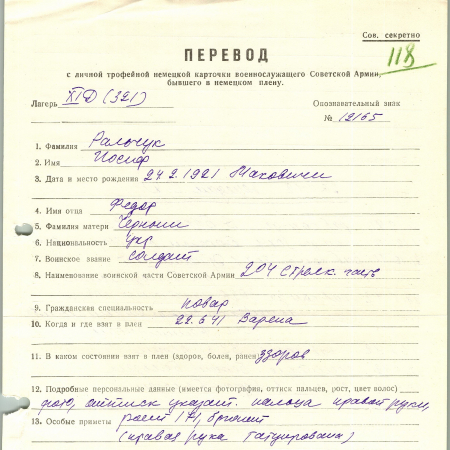 Сов. секретно
118
ПЕРЕВОД
с личной трофейной немецкой карточки военнослужащего Советской Армии,
бывшего в немецком плену.
Лагерь XI D (321) Опознавательный знак
№ 12165
1. Фамилия Ральчук
2. Имя Иосиф
3. Дата и место рождения 24.2.1921 Маковичи
4. Имя отца Федор
5. Фамилия матери Черныш
6. Национальность укр
7. Воинское звание солдат
8. Наименование воинской части Советской Армии 204 стрелк. часть
9. Гражданская специальность повар
10. Когда и где взят в плен 22.6.41 Варена
11. В каком состоянии взят в плен (здоров, болен, ранен) здоров
12. Подробные персональные данные (имеется фотография, оттиск пальцев, рост, цвет волос)
фото, оттиск указат. пальца правой руки,
13. Особые приметы рост 171, брюнет
(правая рука татуирована)